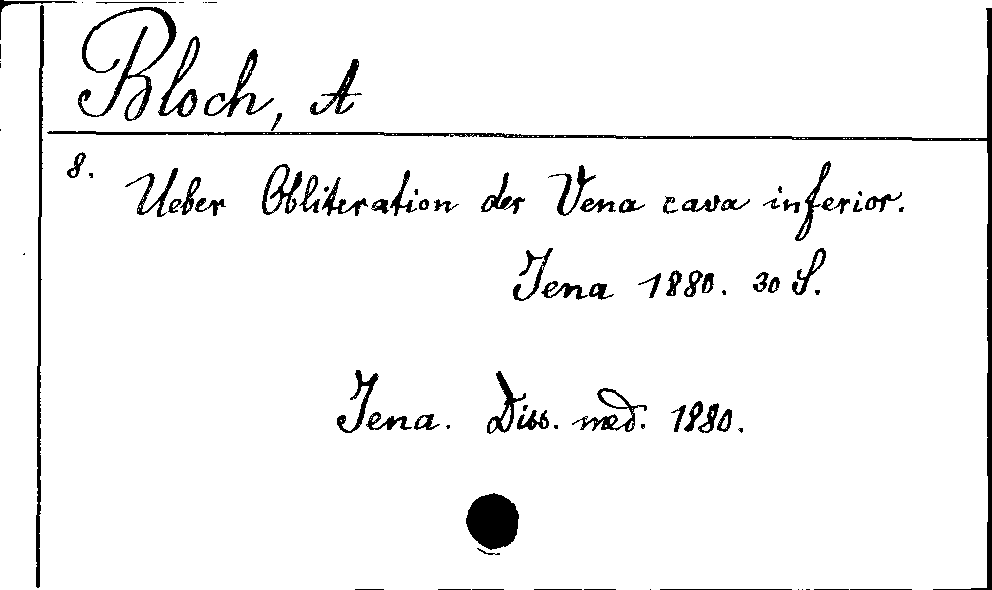 Bloch, A
8.
Ueber Obliteration der Vena cava inferior.
Jena 1880. 30 S.
Jena. Diss. med. 1880.